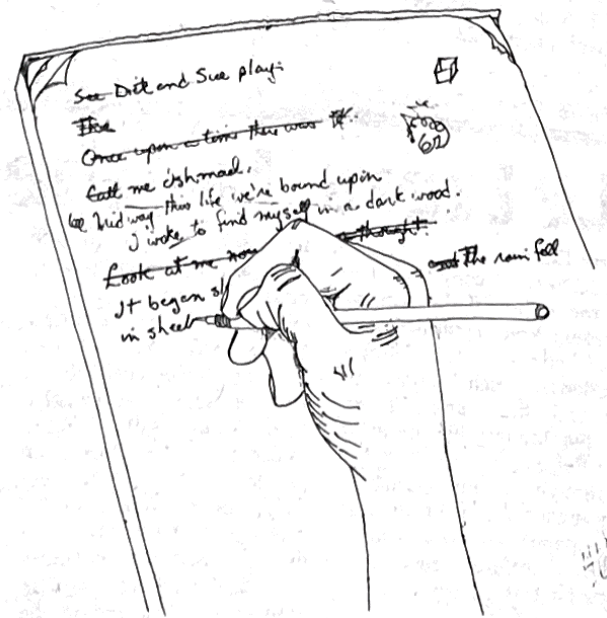 See Dick and Sue play.
The
Once upon a time there was
Call me Ishmael.
Midway this life we're bound upon
I woke to find myself in a dark wood.
Look at me now thought.
It began The rain fell
in sheet